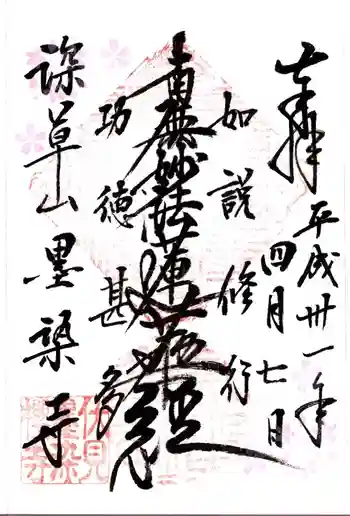 奉拝
平成卅一年
四月七日
如説修行
南無妙法蓮華経
功徳甚多
深草山墨染寺
伏見
墨染
桜寺